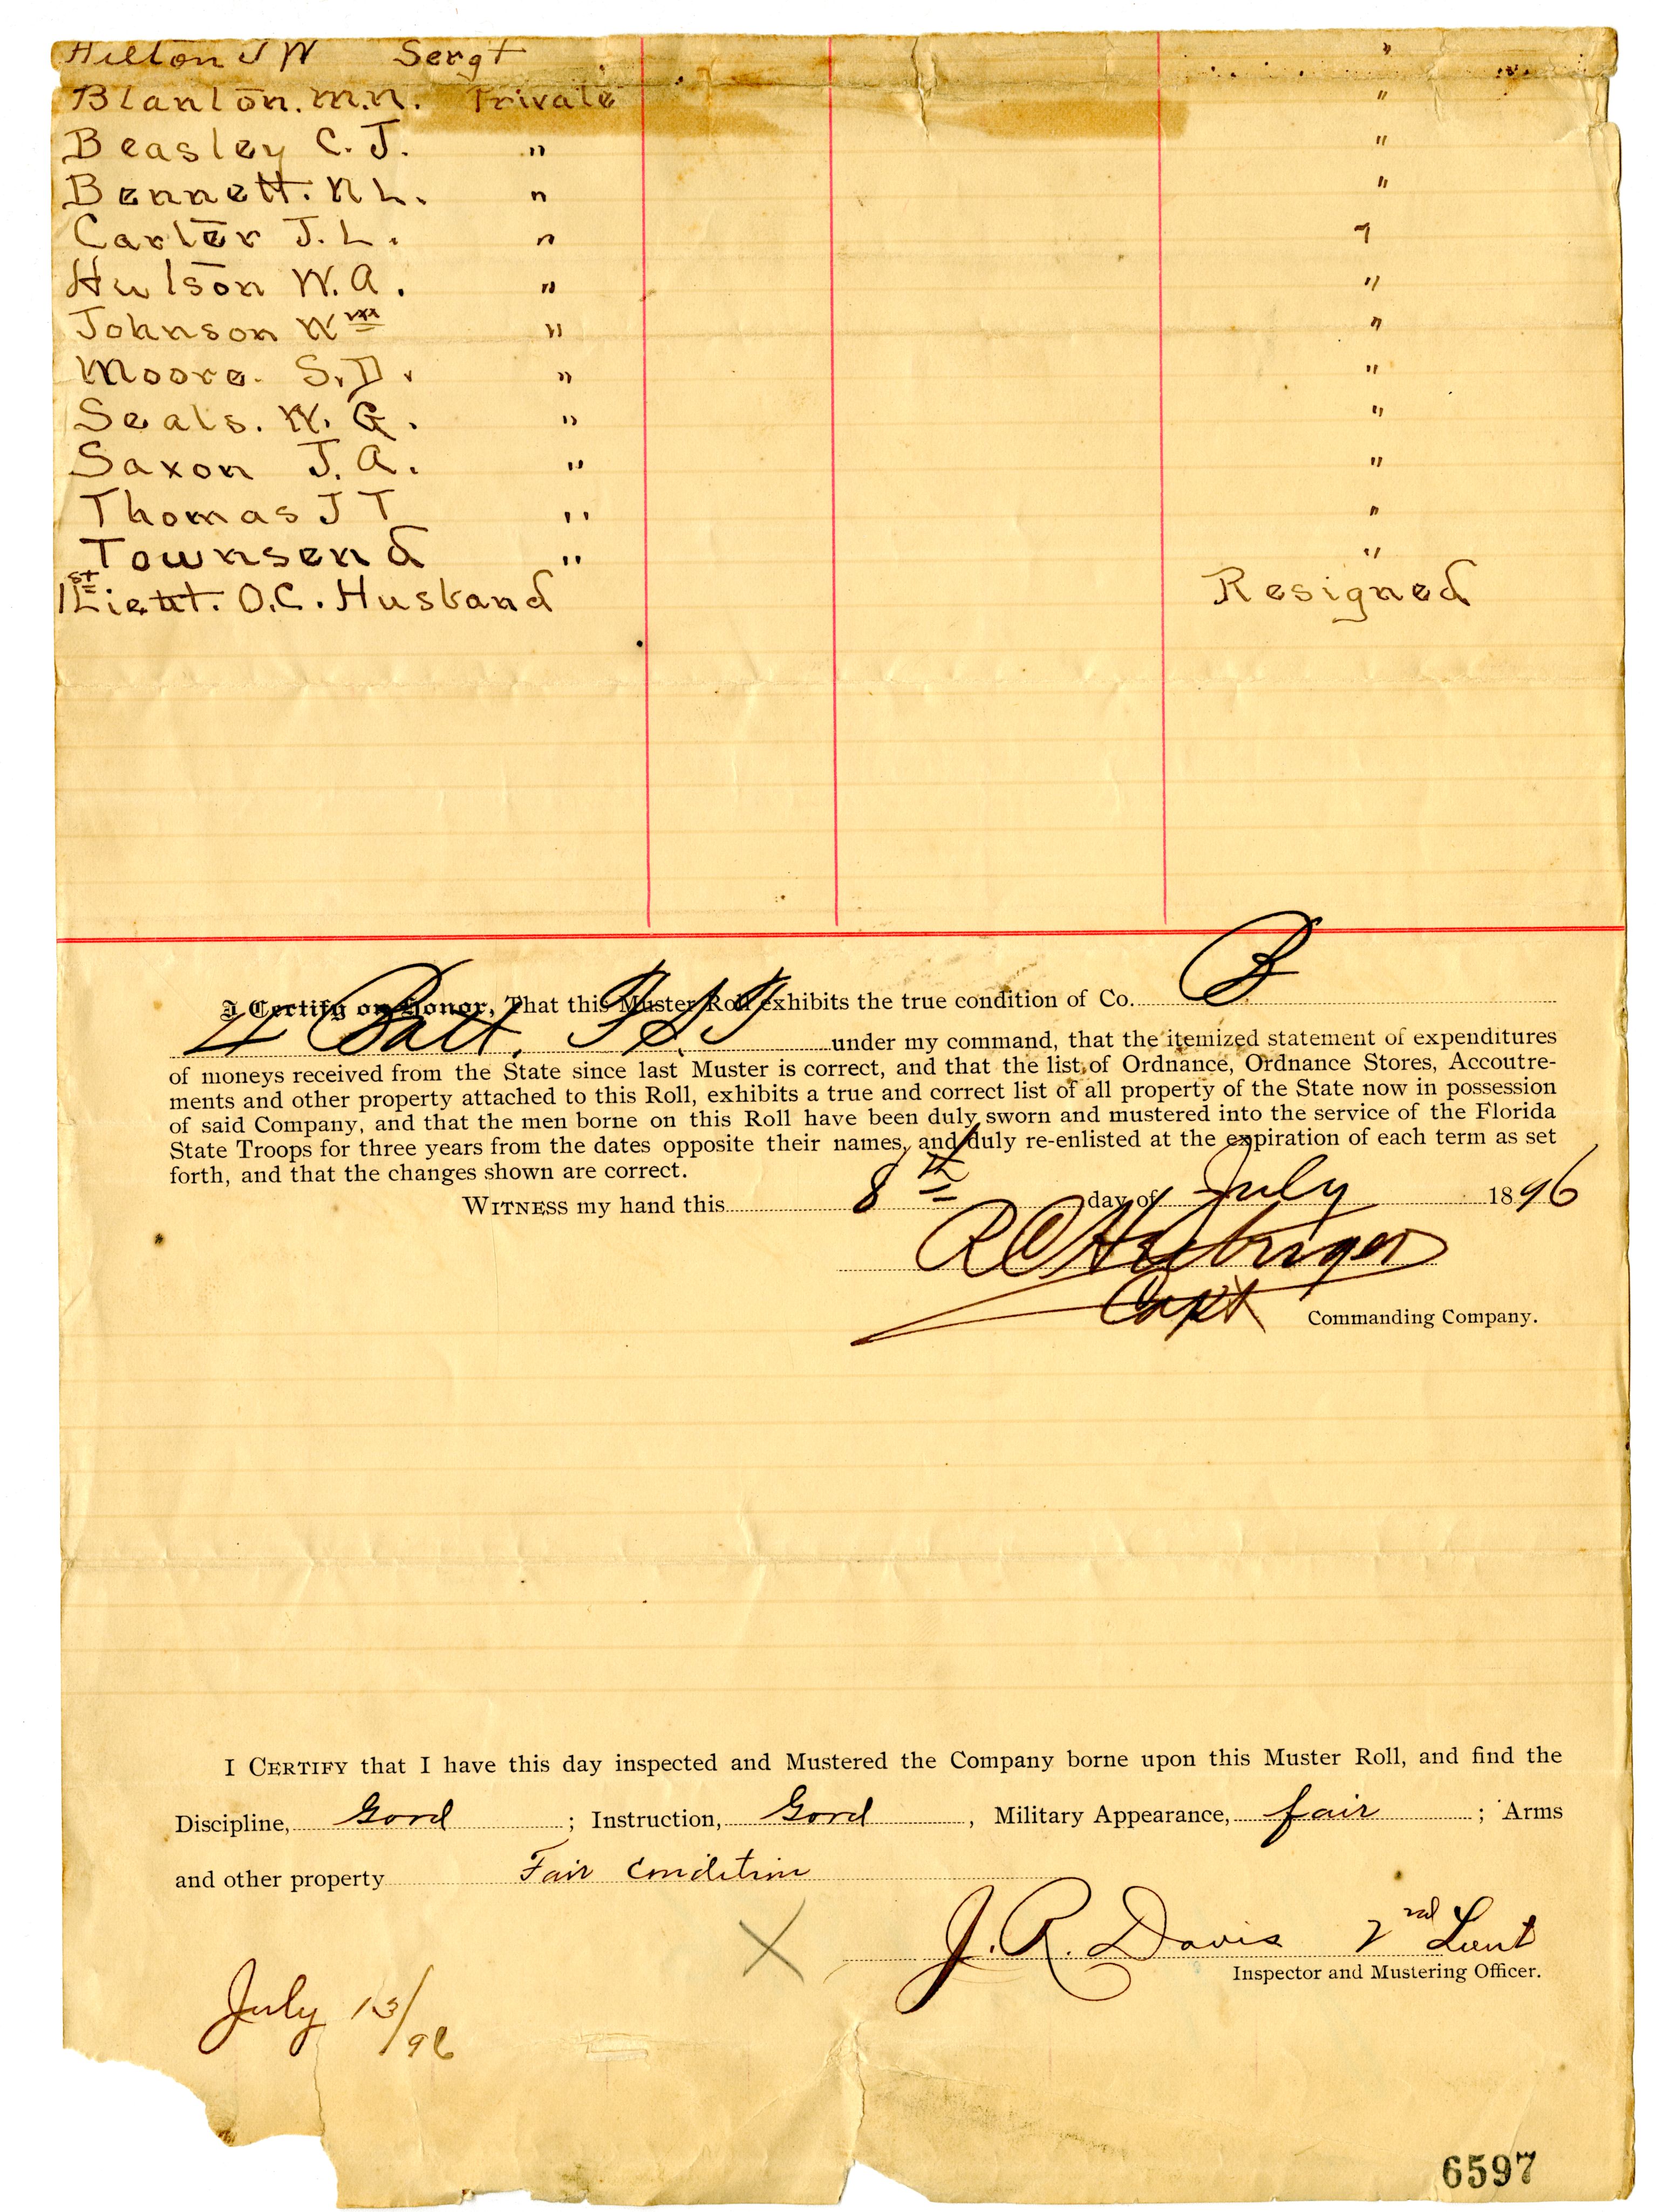 Hilton J W Sergt "
Blanton. M.N. Private "
Beasley C. J. " "
Bennett. N L. " "
Carter J. L. " "
Hutson W. A. " "
Johnson Wm " "
Moore. S. D. " "
Seals. W. G. " "
Saxon J. A. " "
Thomas J T " "
Townsend " "
1st Lieut. O.C. Husband Resigned
I Certify on Honor, That this Muster Roll exhibits the true condition of Co. B
4 Batt. F S T under my command, that the itemized statement of expenditures
of moneys received from the State since last Muster is correct, and that the list of Ordnance, Ordnance Stores, Accoutre-
ments and other property attached to this Roll, exhibits a true and correct list of all property of the State now in possession
of said Company, and that the men borne on this Roll have been duly sworn and mustered into the service of the Florida
State Troops for three years from the dates opposite their names, and duly re-enlisted at the expiration of each term as set
forth, and that the changes shown are correct.
WITNESS my hand this 8th day of July 1896
Capt Commanding Company.
I CERTIFY that I have this day inspected and Mustered the Company borne upon this Muster Roll, and find the
Discipline, Good ; Instruction, Good , Military Appearance, fair ; Arms
and other property Fair Condition
J. R. Davis 2nd Lieut
Inspector and Mustering Officer.
July 13/96
6597